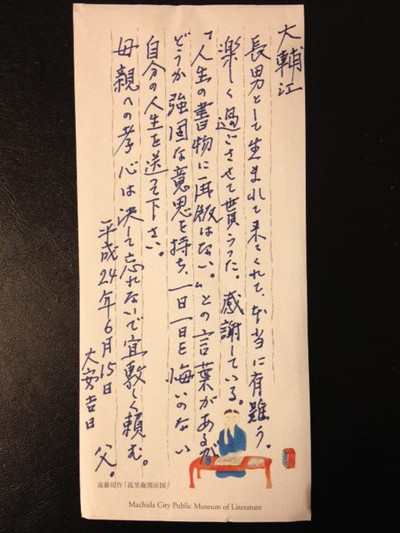 大輔江
長男として生まれて来てくれて、本当に有難う。
楽しく過ごさせて貰らった。感謝している。
「人生の書物に再版はない。」との言葉があるが
どうか強固な意思を持ち、一日一日を悔いのない
自分の人生を送って下さい。
母親への孝心は決して忘れないで宜敷く頼む。
平成24年6月15日
大安吉日
父。
遠藤周作『狐里庵閑居図』
Machida City Public Museum of Literature